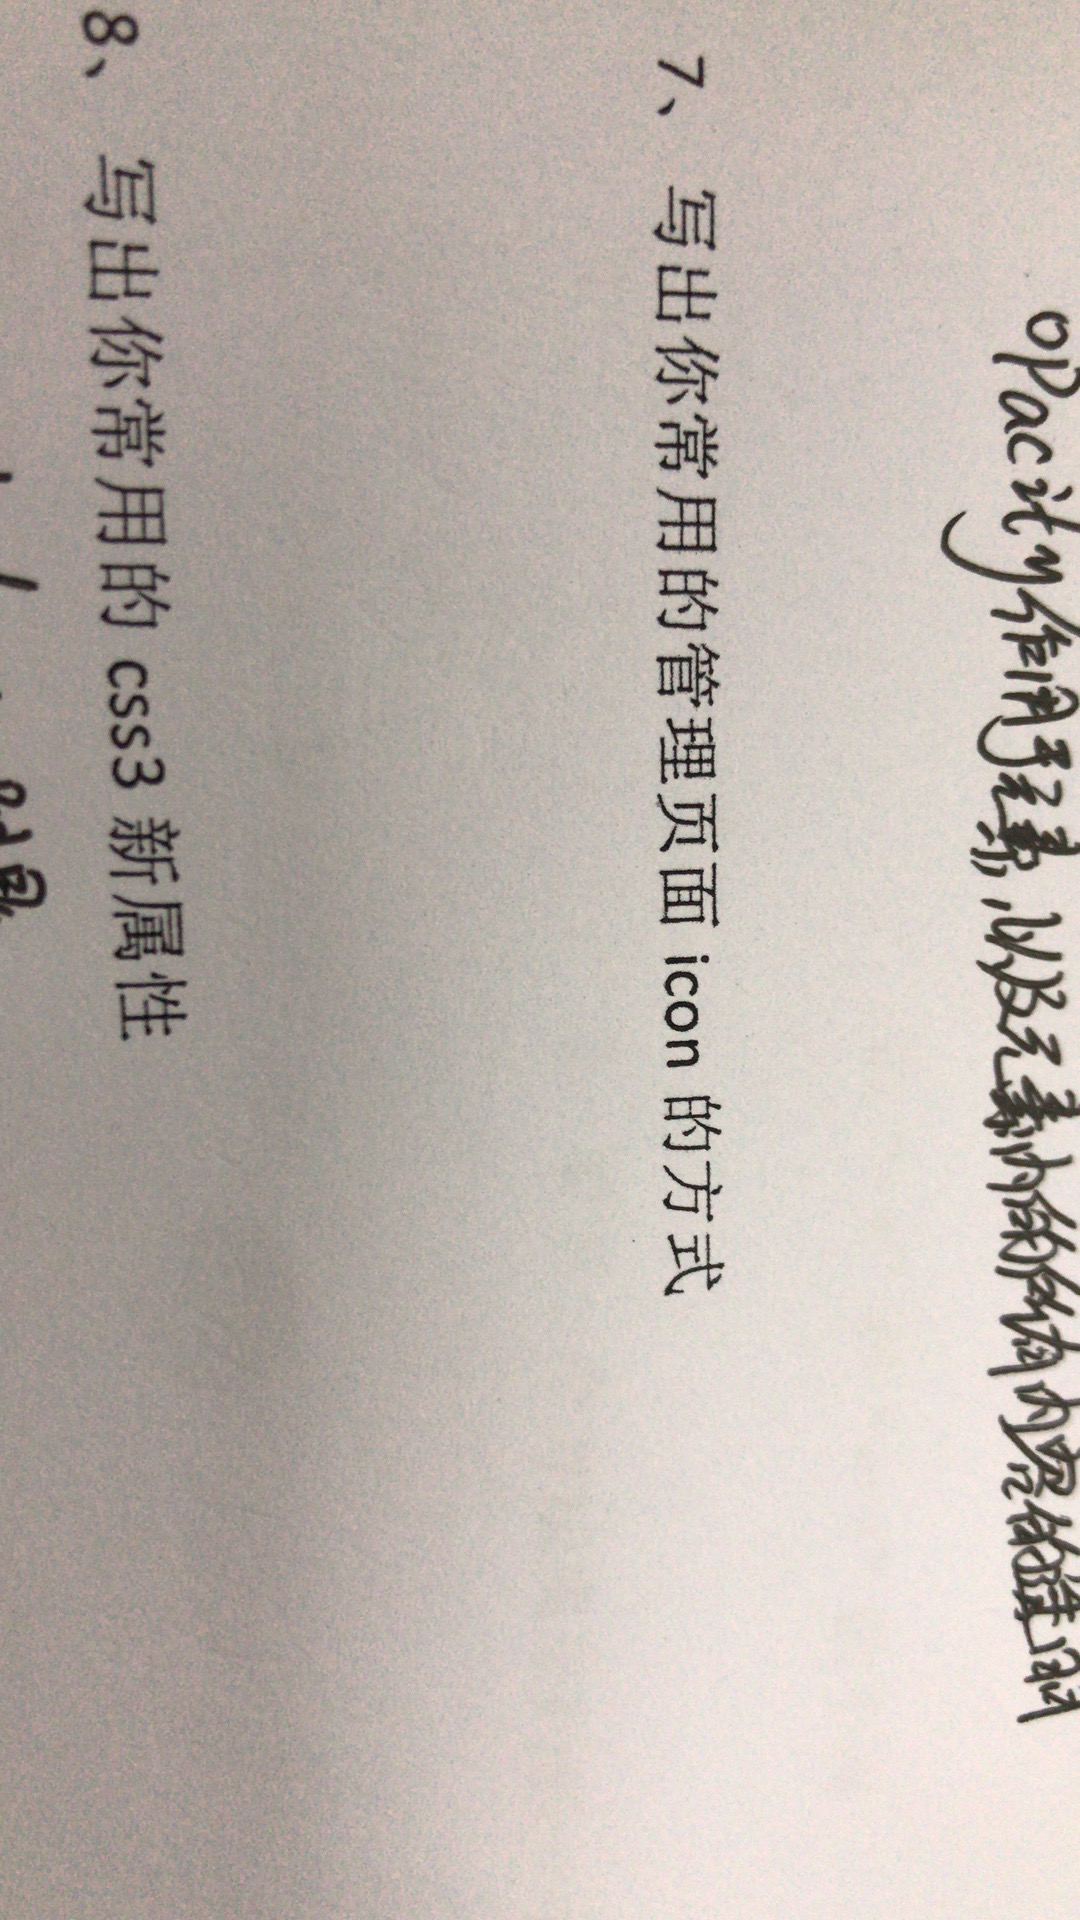 opacity作用于元素,以及元素内的所有内容的透明
7、 写出你常用的管理页面 icon 的方式
8、 写出你常用的 css3 新属性